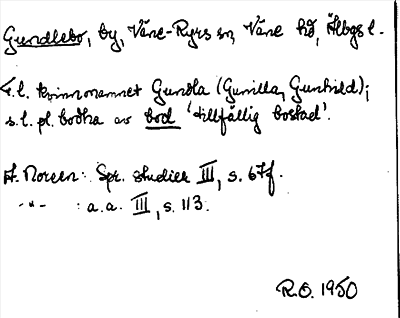 Gundlebo, by, Väne-Ryrs sn, Väne hd, Älvsbgs l.
F.l. kvinnonamnet Gundla (Gunilla, Gunhild);
s.l. pl. bodha av bod 'tillfällig bostad'.
A. Noreen: Spr. studier III, s. 67f.
-"- : a.a. III, s. 113.
R.O. 1950